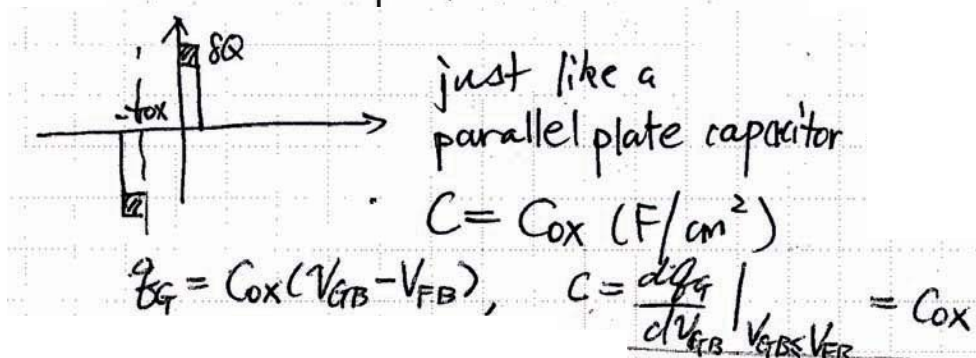 δQ
-tox
just like a
parallel plate capacitor
C = Cox (F/cm²)
qG = Cox(VGB - VFB), C = dqG/dVGB |VGB≤VFB = Cox